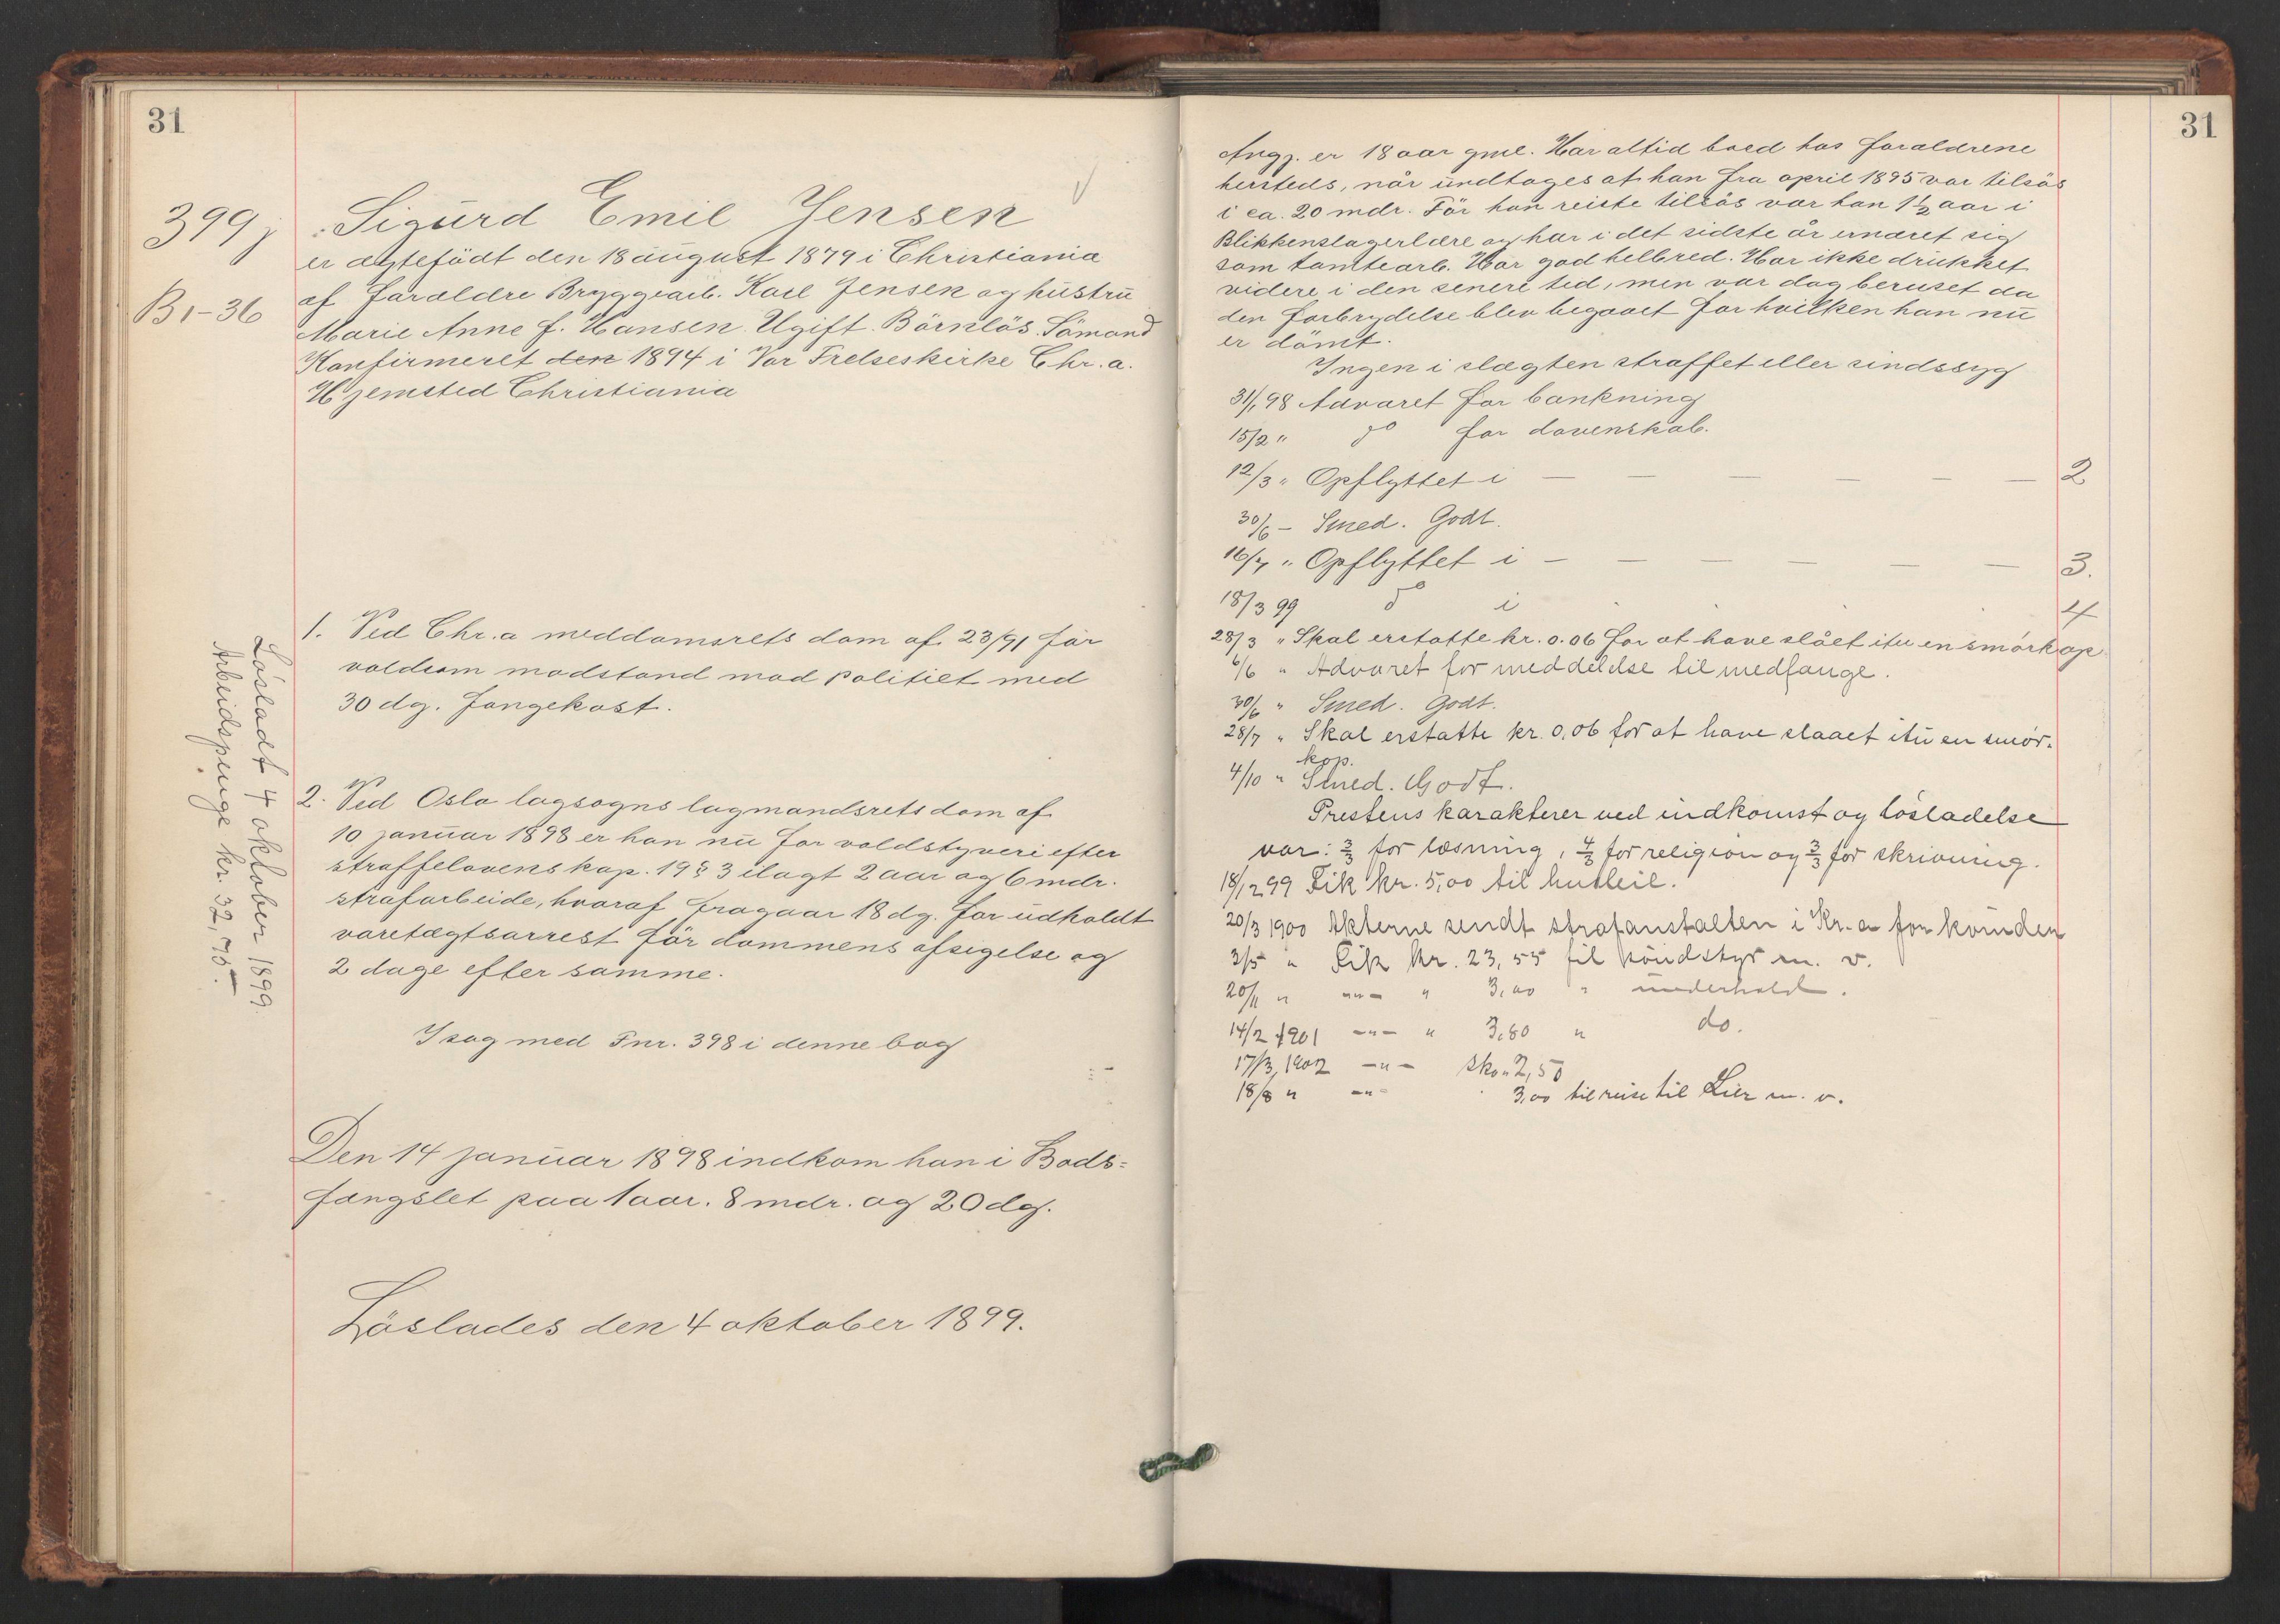 31
399j
B1-36
Sigurd Emil Jensen
er ægtefödt den 18 august 1879 i Christiania
af foræeldre Bryggearb. Karl Jensen og hustru
Marie Anne f. Hansen. Ugift. Börnlös. Sömand
Konfirmeret den 1894 i Vor Frelseskirke Chr.a.
Hjemsted Christiania
1. Ved Chr.a meddomsrets dom af 23/91 for
voldsom modstand mod politiet med
30 dg. fangekost.
2. Ved Oslo lagsogns lagmandsrets dom af
10 januar 1898 er han nu for voldstyveri efter
straffelovens kap. 19 § 3 ilagt 2 aar og 6 mdr.
strafarbeide, hvoraf fragaar 18 dg. for udholdt
varetægtsarrest för dommens afsigelse og
2 dage efter samme.
I sag med Fnr. 398 i denne bog
Den 14 januar 1898 indkom han i Bods=
fængslet paa 1 aar. 8 mdr. og 20 dg.
Löslades den 4 oktober 1899.
Lösladt 4 oktober 1899.
Arbeidspenge kr. 32,75.
31
Angj. er 18 aar gml. Har altid boed hos forældrene
hersteds, når undtages at han fra april 1895 var tilsös
i ca. 20 mdr. För han reiste tilsös var han 1 1/2 aar i
Blikkenslagerlære og har i det sidste år ernæret sig
som tomtearb. Har god helbred. Har ikke drukket
videre i den senere tid, men var dog beruset da
den forbrydelse blev begaaet for hvilken han nu
er dömt.
Ingen i slægten straffet eller sindssyg
31/1 98 Advaret for bankning
15/2 " do for dovenskab.
12/3 " Opflyttet i — — — — — — 2
30/6 - Smed. Godt.
16/7 " Opflyttet i — — — — — — 3.
18/3 99 do i . . . . 4
28/3 " Skal erstatte kr. 0.06 for at have slået itu en smörkop
6/6 " Advaret for meddelelse til medfange.
30/6 " Smed. Godt.
28/7 " Skal erstatte kr. 0,06 for at have slaaet itu en smör-
kop.
4/10 " Smed. Godt.
Prestens karakterer ved indkomst og lösladelse
var: 3/3 for læsning, 4/3 for religion og 3/3 for skrivning.
18/12 99 Fik kr. 5,00 til husleie.
20/3 1900 Akterne sendt strafanstalten i Kr.a for kvinder
3/5 " Fik kr. 23,55 til m. v.
20/11 " -"- " 3,00 " underhold.
14/2 1901 -"- " 3,80 " do.
17/3 1902 -"- sko " 2,50
18/8 " -"- 3,00 til reise til Lier m. v.